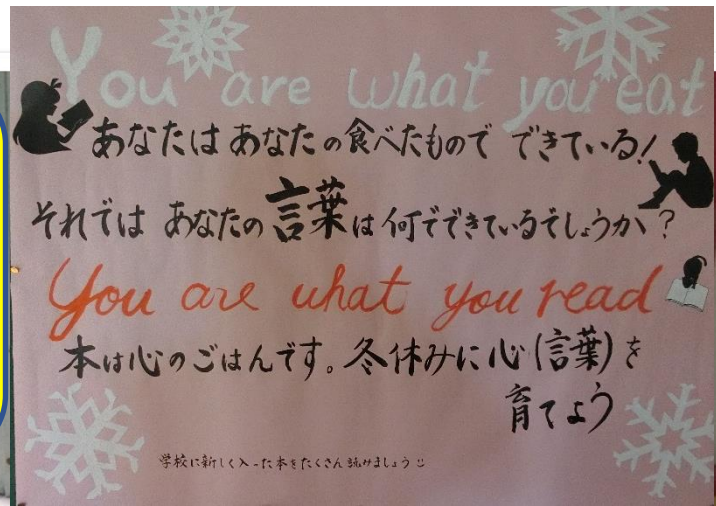 You are what you eat
あなたは あなたの食べたもので できている!
それでは あなたの言葉は何でできているでしょうか?
You are what you read
本は心のごはんです。冬休みに心(言葉)を
育てよう
学校に新しく入った本をたくさん読みましょう